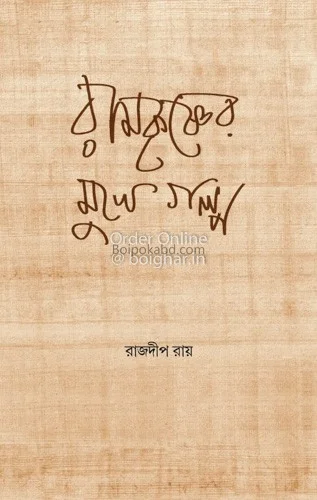 রামকৃষ্ণের
মুখে গল্প
Order Online
Boipokabd.com
@ boighar.in
রাজদীপ রায়